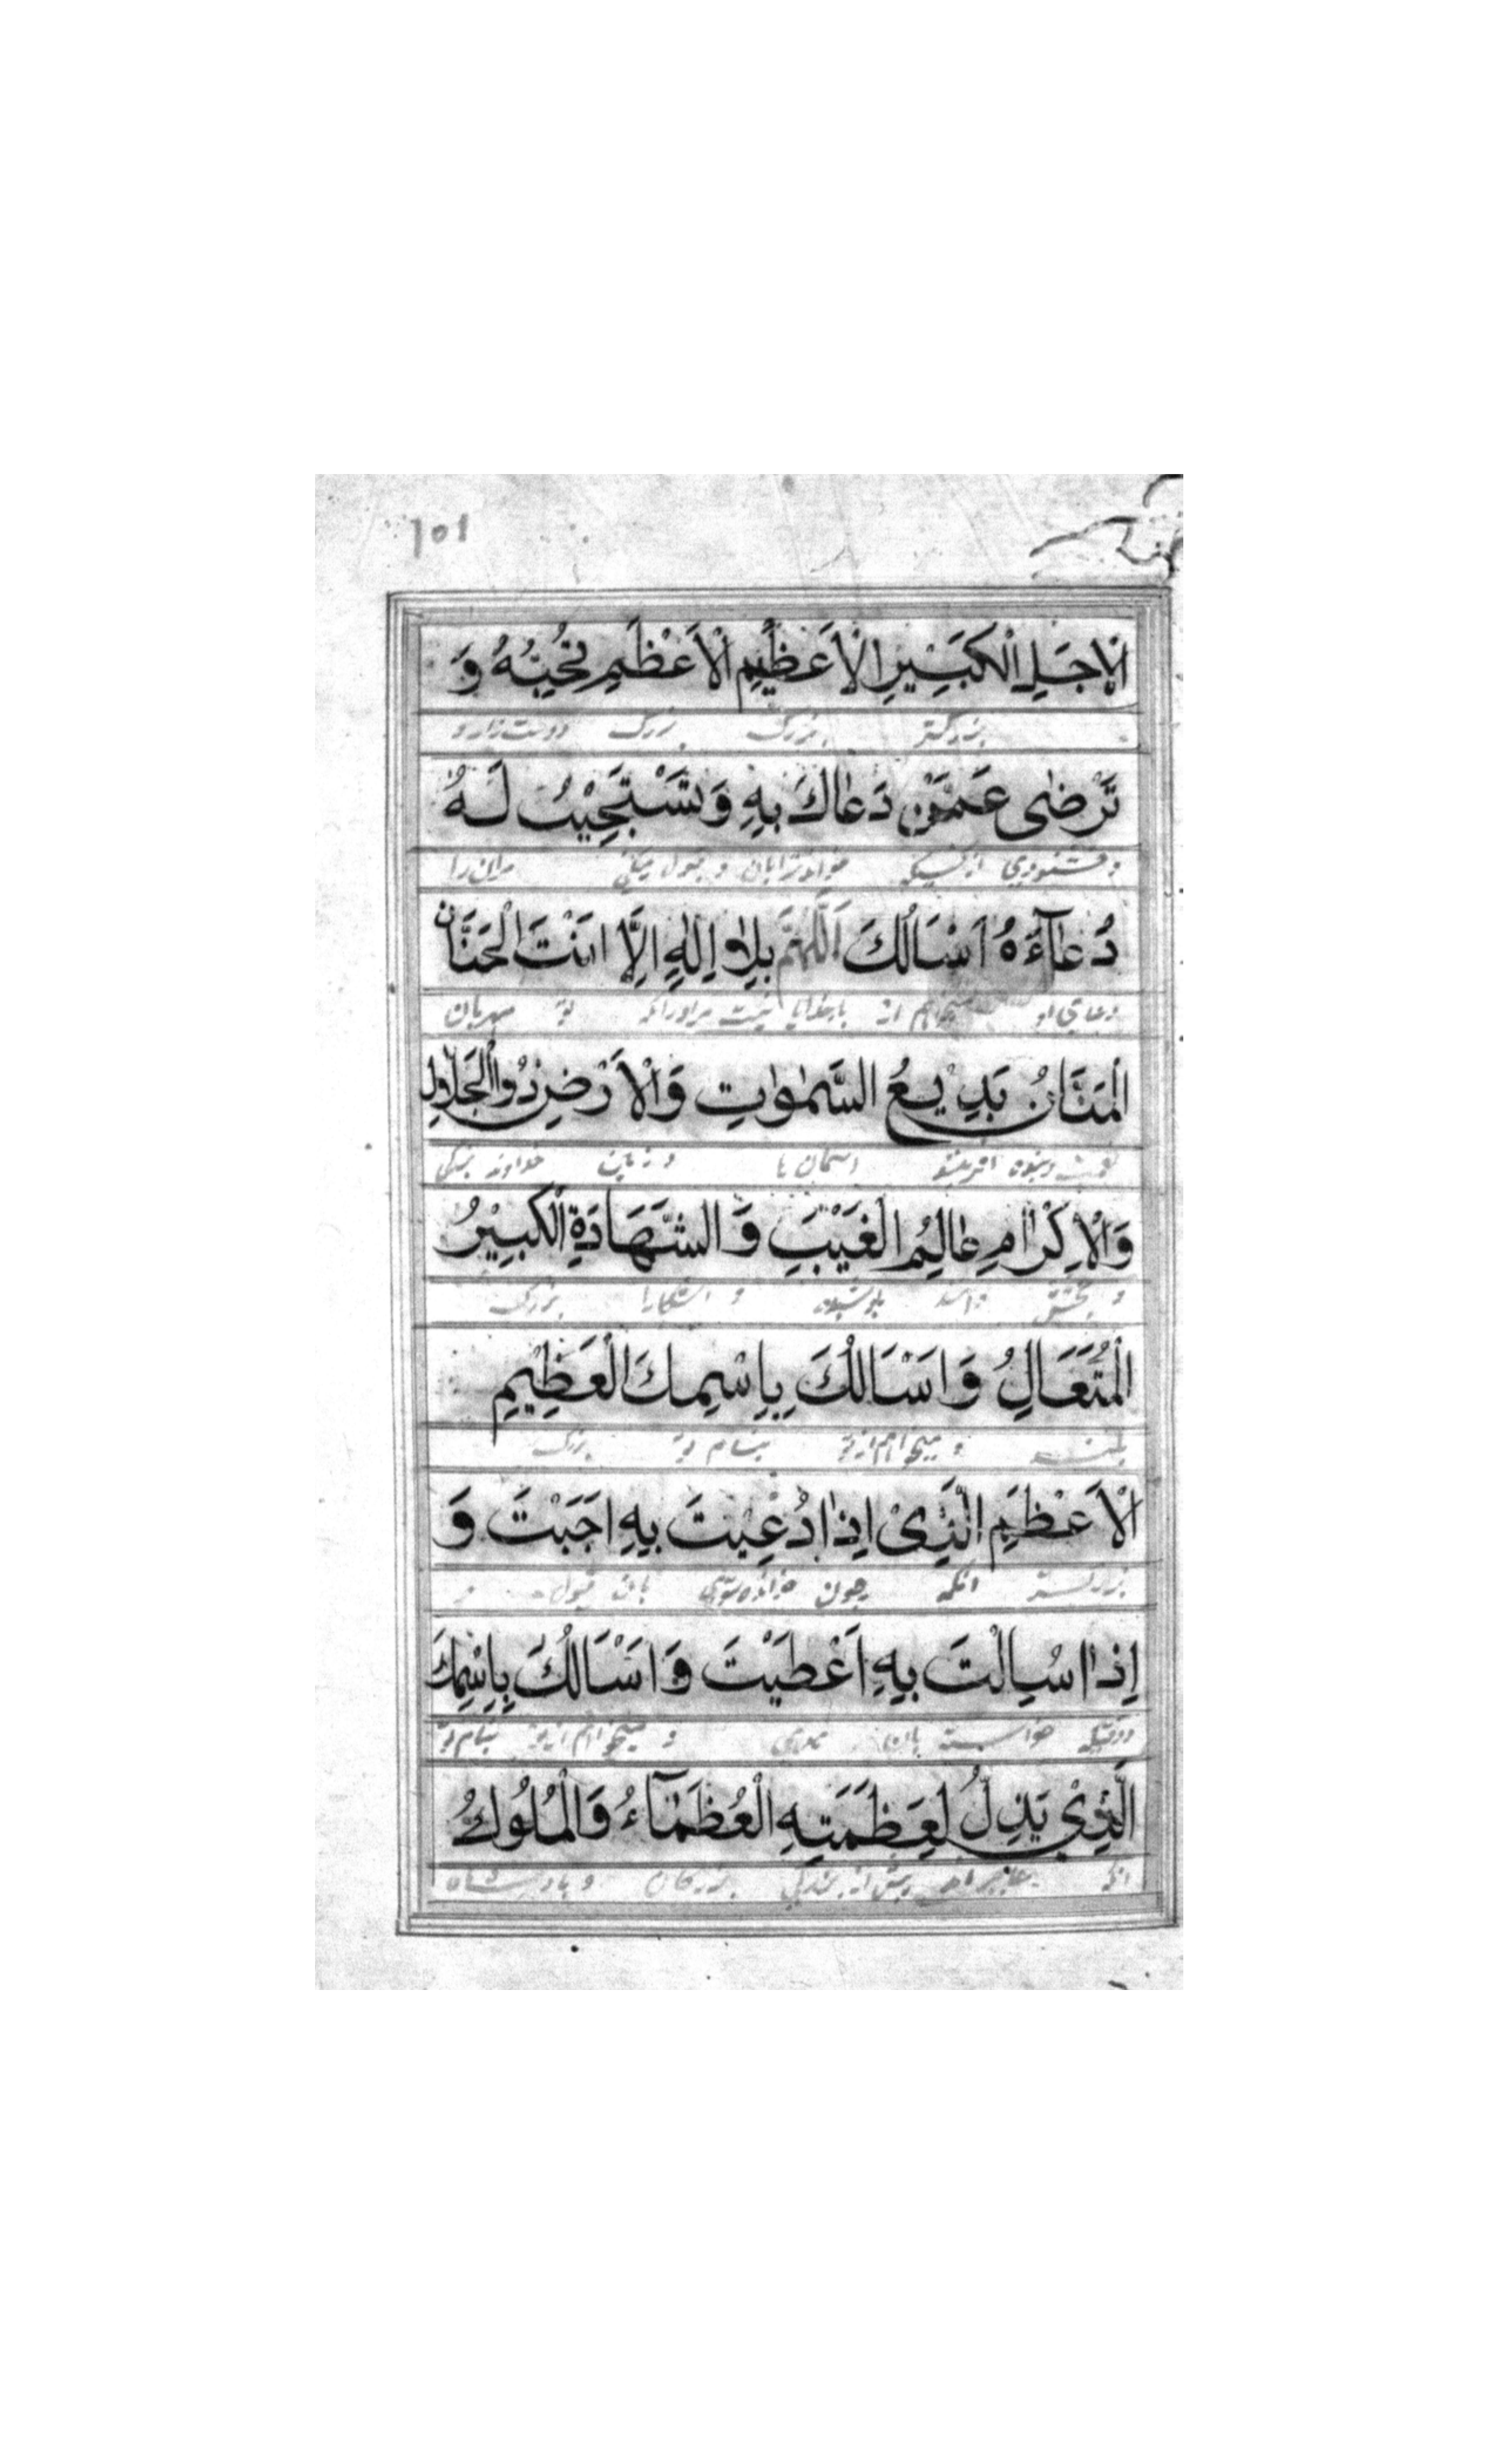 ١٥١
الْاَجَلِ الْكَبِيْرِ الْاَعْظِيْمِ الْاَعْظَمِ تُحِبُّهُ وَ
بزرگتر بزرگ بزرگ دوست دارد و
تَرْضٰى عَمَّنْ دَعَاكَ بِهٖ وَتَسْتَجِيْبُ لَهُ
و خشنودی از کسیکه خواند ترا بان و قبول میکنی مران را
دُعَآءُهُ اَسْاَلُكَ اَللّٰهُمَّ بِلَا اِلٰهِ اِلَّا اَنْتَ الْحَنَّانُ
دعای او میخواهم از بارخدایا نیست مراورانکه تو مهربان
الْمَنَّانُ بَدِيْعُ السَّمٰوٰتِ وَالْاَرْضِ ذُوالْجَلَالِ
افریننده اسمان ها و زمین خداوند بزرگی
وَالْاِكْرَامِ عَالِمُ الْغَيْبِ وَالشَّهَادَةِ الْكَبِيْرُ
و بخشش داننده پوشیده و اشکارا بزرگ
الْمُتَعَالِ وَاَسْاَلُكَ بِاِسْمِكَ الْعَظِيْمِ
بلند و میخواهم از تو بنام تو بزرگ
الْاَعْظَمِ الَّذِىْ اِذَا دُعِيْتَ بِهٖ اَجَبْتَ وَ
بزرگتر انکه چون خوانده شوی بان قبول و
اِذَا سُاِلْتَ بِهٖ اَعْطَيْتَ وَاَسْاَلُكَ بِاِسْمِكَ
و وقتیکه خواسته بان و میخواهم از تو بنام تو
الَّذِىْ يَذِلُّ لِعَظَمَتِهِ الْعُظَمَآءُ وَالْمُلُوْكُ
انکه پیش از بزرگی بزرگان و پادشاهان